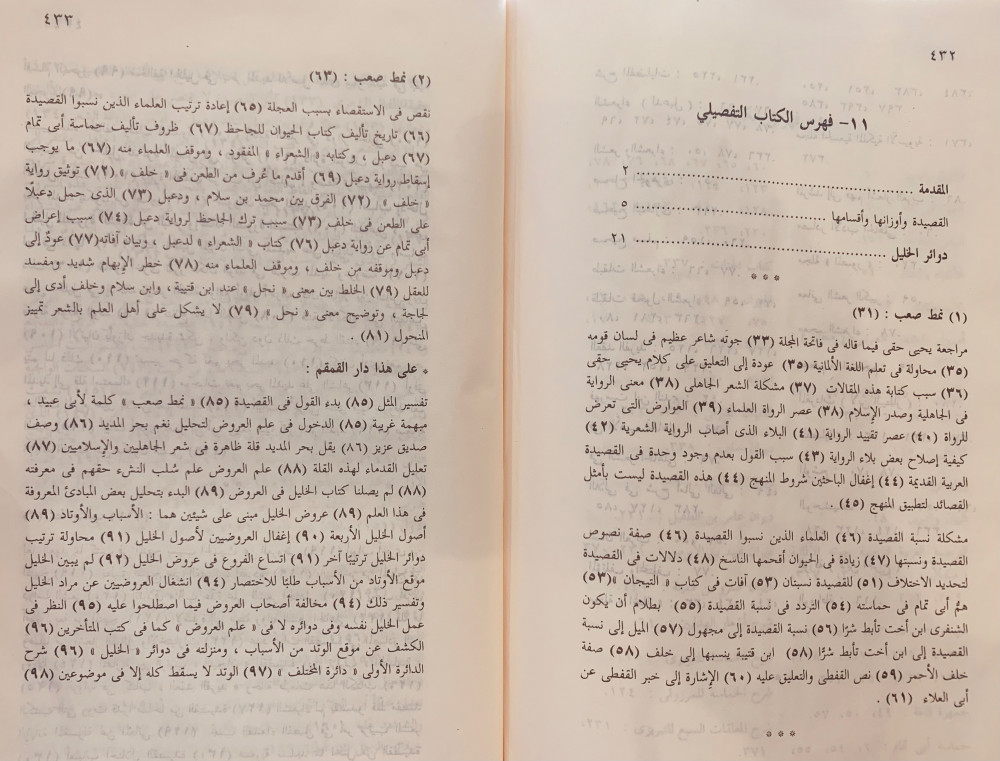 ٤٣٢
١١- فهرس الكتاب التفصيلي
المقدمة ........................................................ ٢
القصيدة وأوزانها وأقسامها ........................................ ٥
دوائر الخليل .................................................. ٢١
* * *
(١) نمط صعب : (٣١)
مراجعة يحيى حقى فيما قاله فى فاتحة المجلة (٣٣) جوته شاعر عظيم فى لسان قومه
(٣٥) محاولة فى تعلم اللغة الألمانية (٣٥) عودة إلى التعليق على كلام يحيى حقى
(٣٦) سبب كتابة هذه المقالات (٣٧) مشكلة الشعر الجاهلى (٣٨) معنى الرواية
فى الجاهلية وصدر الإسلام (٣٨) عصر الرواة العلماء (٣٩) العوارض التى تعرض
للرواة (٤٠) عصر تقييد الرواية (٤١) البلاء الذى أصاب الرواية الشعرية (٤٢)
كيفية إصلاح بعض بلاء الرواية (٤٣) سبب القول بعدم وجود وحدة فى القصيدة
العربية القديمة (٤٤) إغفال الباحثين شروط المنهج (٤٤) هذه القصيدة ليست بأمثل
القصائد لتطبيق المنهج (٤٥) .
مشكلة نسبة القصيدة (٤٦) العلماء الذين نسبوا القصيدة (٤٦) صفة نصوص
القصيدة ونسبتها (٤٧) زيادة فى الحيوان أقحمها الناسخ (٤٨) دلالات فى القصيدة
لتحديد الاختلاف (٥١) للقصيدة نسبتان (٥٣) آفات فى كتاب « التيجان »(٥٣)
همُّ أبى تمام فى حماسته (٥٤) التردد فى نسبة القصيدة (٥٥) بطلام أن يكون
الشنفرى ابن أخت تأبط شرًا (٥٦) نسبة القصيدة إلى مجهول (٥٧) الميل إلى نسبة
القصيدة إلى ابن أخت تأبط شرًا (٥٨) ابن قتيبة ينسبها إلى خلف (٥٨) صفة
خلف الأحمر (٥٩) نص القفطى والتعليق عليه (٦٠) الإشارة إلى خبر القفطى عن
أبى العلاء (٦١) .
* * *
٤٣٣
(٢) نمط صعب : (٦٣)
نقص فى الاستقصاء بسبب العجلة (٦٥) إعادة ترتيب العلماء الذين نسبوا القصيدة
(٦٦) تاريخ تأليف كتاب الحيوان للجاحظ (٦٧) ظروف تأليف حماسة أبى تمام
(٦٧) دعبل ، وكتابه « الشعراء » المفقود ، وموقف العلماء منه (٦٧) ما يوجب
إسقاط رواية دعبل (٦٩) أقدم ما عُرف من الطعن فى « خلف » (٧٢) توثيق رواية
« خلف » (٧٢) الفرق بين محمد بن سلام ، ودعبل (٧٣) الذى حمل دعبلًا
على الطعن فى خلف (٧٣) سبب ترك الجاحظ لرواية دعبل (٧٤) سبب إعراض
أبى تمام عن رواية دعبل (٧٦) كتاب « الشعراء » لدعبل ، وبيان آفاته(٧٧) عودٌ إلى
دعبل وموقفه من خلف ، وموقف العلماء منه (٧٨) خطر الإبهام شديد ومفسد
للعقل (٧٩) الخلط بين معنى « نحل » عند ابن قتيبة ، وابن سلام وخلف أدى إلى
لجاجة ، وتوضيح معنى « نحل » (٧٩) لا يشكل على أهل العلم بالشعر تمييز
المنحول (٨١) .
* على هذا دار القمقم :
تفسير المثل (٨٥) بدء القول فى القصيدة (٨٥) « نمط صعب » كلمة لأبى عبيد ،
مبهمة غريبة (٨٥) الدخول فى علم العروض لتحليل نغم بحر المديد (٨٦) وصف
صديق عزيز (٨٦) يقل بحر المديد قلة ظاهرة فى شعر الجاهليين والإسلاميين (٨٧)
تعليل القدماء لهذه القلة (٨٨) علم العروض علم سُلب النشء حقهم فى معرفته
(٨٨) لم يصلنا كتاب الخليل فى العروض (٨٩) البدء بتحليل بعض المبادئ المعروفة
فى هذا العلم (٨٩) عروض الخليل مبنى على شيئين هما : الأسباب والأوتاد (٨٩)
أصول الخليل الأربعة (٩٠) إغفال العروضيين لأصول الخليل (٩١) محاولة ترتيب
دوائر الخليل ترتيبًا آخر (٩١) اتساع الفروع فى عروض الخليل (٩٢) لم يبين الخليل
موقع الأوتاد من الأسباب طلبًا للاختصار (٩٤) انشغال العروضيين عن مراد الخليل
وتفسير ذلك (٩٤) مخالفة أصحاب العروض فيما اصطلحوا عليه (٩٥) النظر فى
عمل الخليل نفسه وفى دوائره لا فى « علم العروض » كما فى كتب المتأخرين (٩٦)
الكشف عن موقع الوتد من الأسباب ، ومنزلته فى دوائر « الخليل » (٩٦) شرح
الدائرة الأولى « دائرة المختلف » (٩٧) الوتد لا يسقط كله إلا فى موضوعين (٩٨)